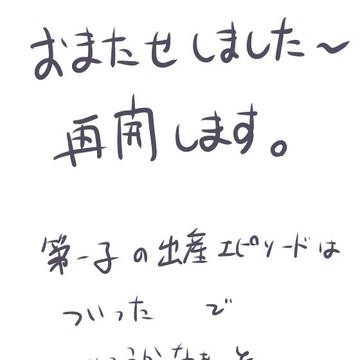 おまたせしました〜
再開します。
第一子の出産エピソードは
ついった で